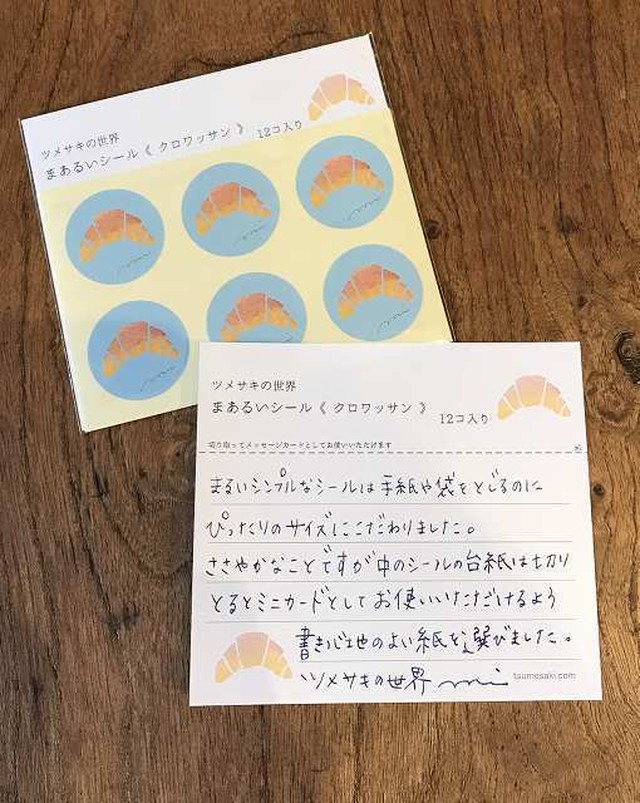 ツメサキの世界
まあるいシール《 クロワッサン 》 12コ入り
ツメサキの世界
まあるいシール《 クロワッサン 》 12コ入り
切り取ってメッセージカードとしてお使いいただけます
まるいシンプルなシールは手紙や袋をとじるのに
ぴったりのサイズにこだわりました。
ささやかなことですが中のシールの台紙は切り
とるとミニカードとしてお使いいただけるよう
書き心地のよい紙を選びました。
ツメサキの世界
tsumesaki.com